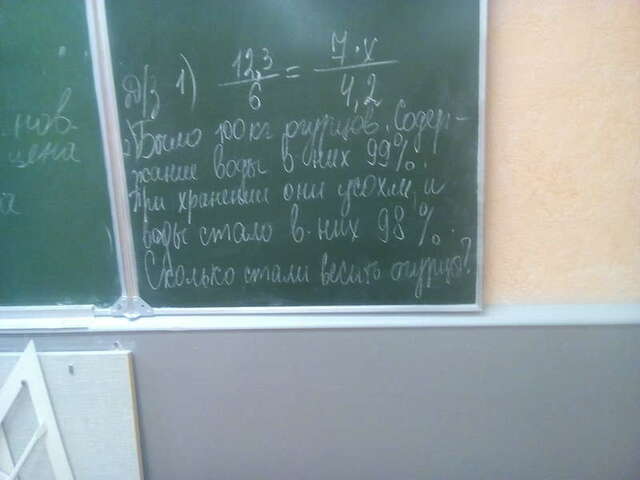 нов.
цена
а
Д/з 1) 12,3/6 = 7·x/4,2
2) Было 100 кг огурцов. Содер-
жание воды в них 99%.
При хранении они усохли, и
воды стало в них 98%.
Сколько стали весить огурцы?